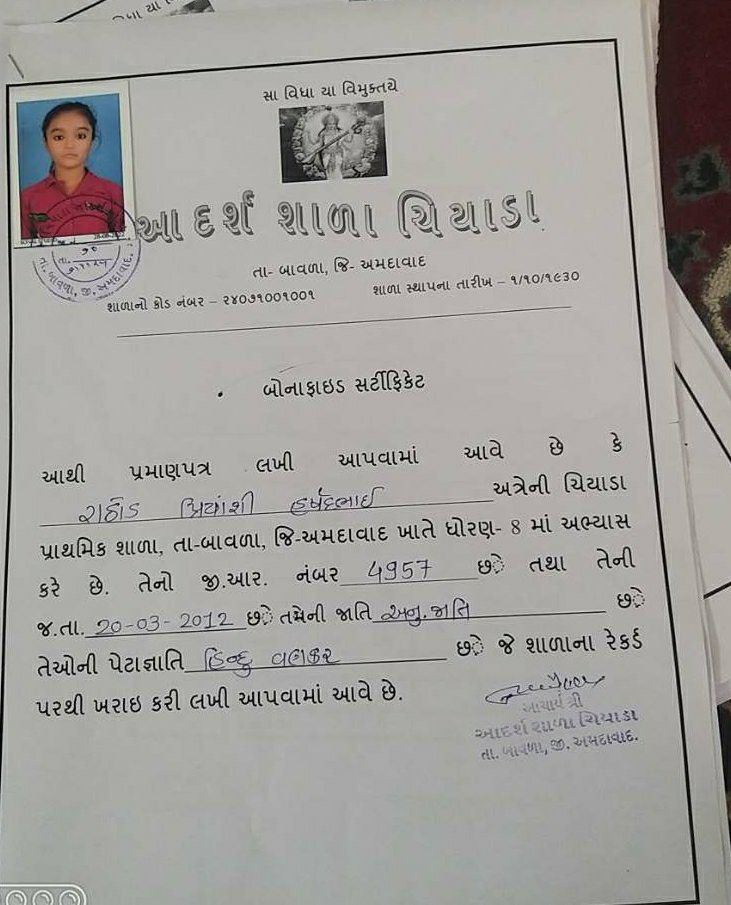 સા વિધા યા વિમુક્તયે
આદર્શ શાળા ચિયાડા
તા- બાવળા, જિ- અમદાવાદ
શાળાનો કોડ નંબર - ૨૪૦૭૧૦૦૧૦૦૧ શાળા સ્થાપના તારીખ - ૧/૧૦/૧૯૩૦
બોનાફાઇડ સર્ટીફિકેટ
આથી પ્રમાણપત્ર લખી આપવામાં આવે છે કે
રાઠોડ પ્રિયાંશી હર્ષદભાઇ અત્રેની ચિયાડા
પ્રાથમિક શાળા, તા-બાવળા, જિ-અમદાવાદ ખાતે ધોરણ- 8 માં અભ્યાસ
કરે છે. તેનો જી.આર. નંબર 4957 છે તથા તેની
જ.તા. 20-03-2012 છે તમેની જાતિ અનુ.જાતિ છે
તેઓની પેટાજ્ઞાતિ હિન્દુ વણકર છે જે શાળાના રેકર્ડ
પરથી ખરાઇ કરી લખી આપવામાં આવે છે.
આચાર્ય શ્રી
આદર્શ શાળા ચિયાડા
તા. બાવળા, જી. અમદાવાદ.
તા. બાવળા, જી. અમદાવાદ.